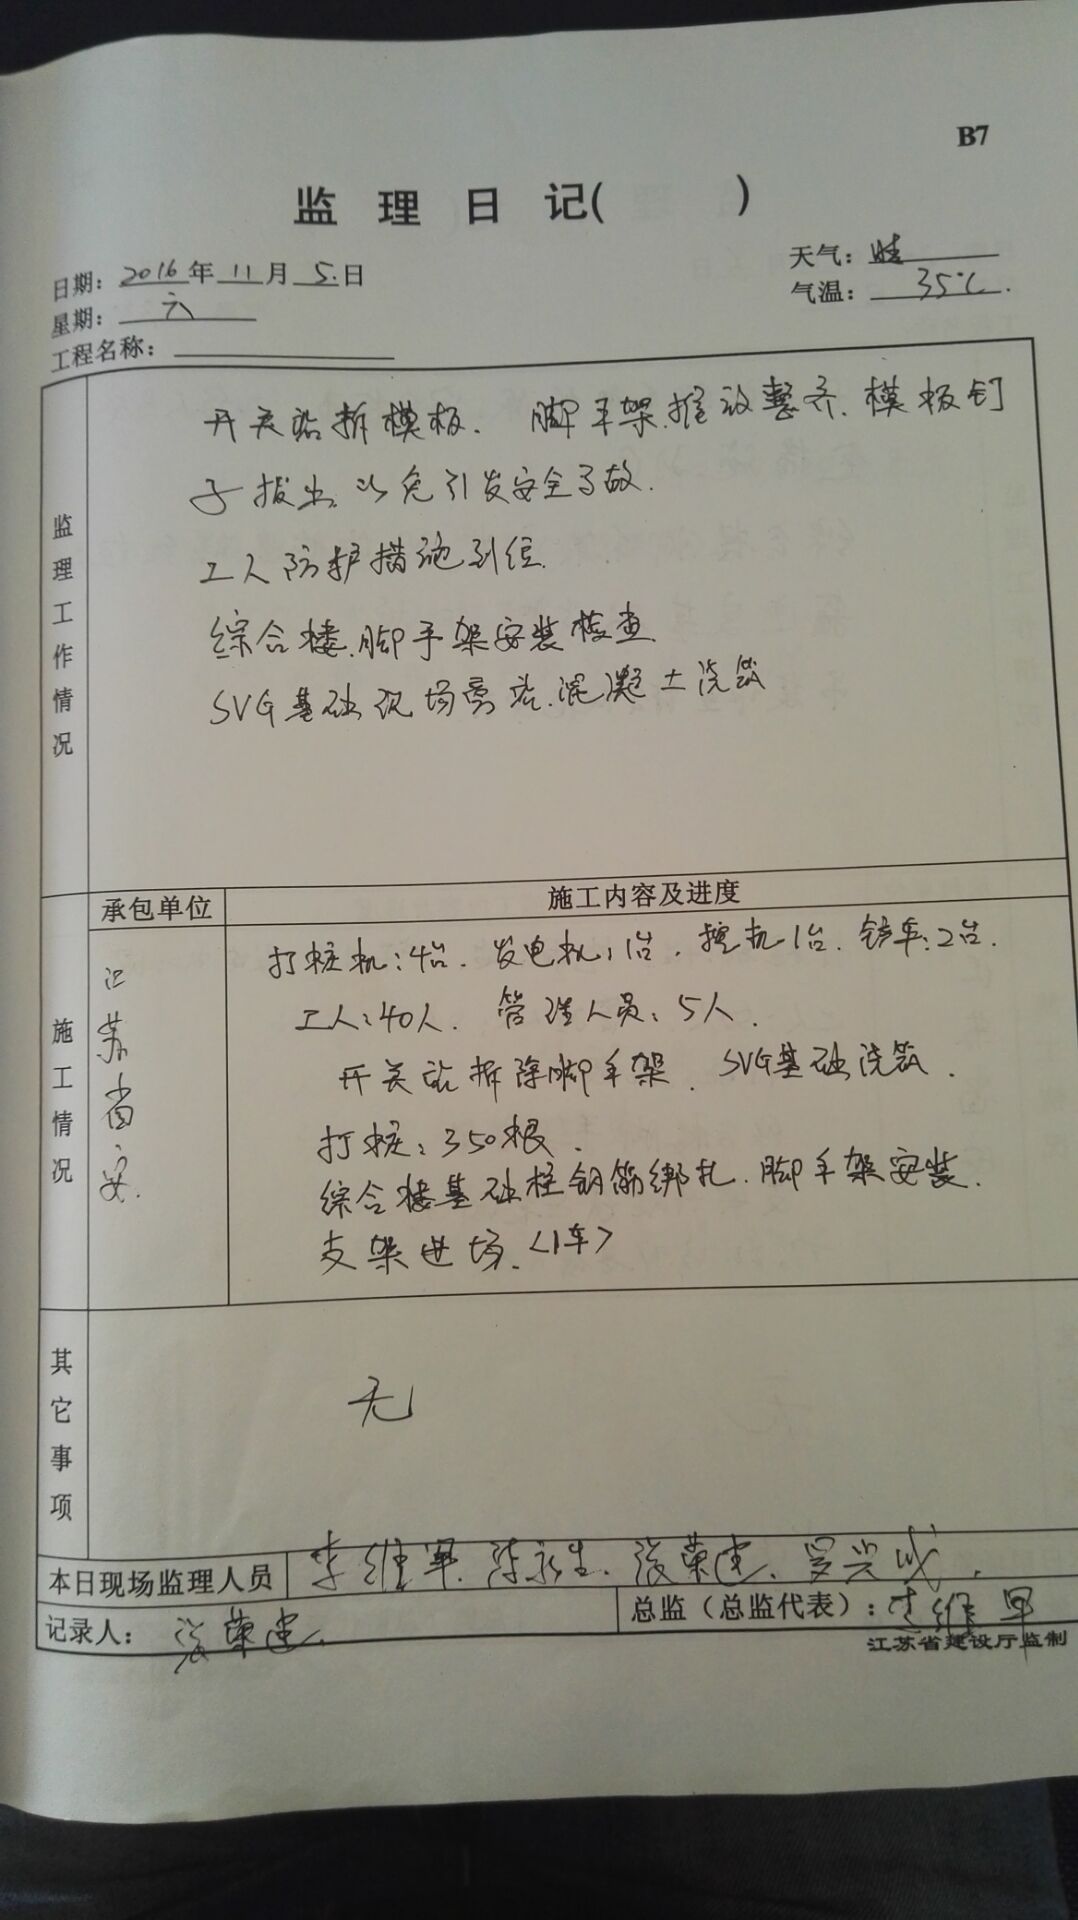 B7
监 理 日 记( )
日期：2016年11月5日
天气：晴
星期：六
气温：35℃.
工程名称：
监理工作情况
开关站拆模板. 脚手架.堆放整齐.模板钉
子拔出.以免引发安全事故.
工人防护措施到位.
综合楼.脚手架安装检查.
SVG基础现场旁站.混凝土浇筑
施工情况
承包单位
施工内容及进度
江苏省安.
打桩机:4台. 发电机:1台. 挖机1台. 铲车:2台.
工人:40人. 管理人员:5人.
开关站拆除脚手架. SVG基础浇筑.
打桩:350根.
综合楼基础柱钢筋绑扎.脚手架安装.
支架进场.<1车>
其它事项
无
本日现场监理人员 李维军.陈永生.张荣建.罗兴成.
记录人：张荣建.
总监（总监代表）：李维军
江苏省建设厅监制